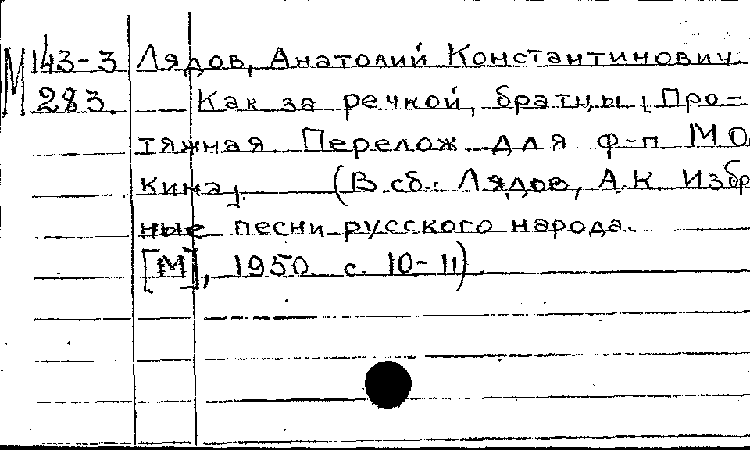 М 143-3 Лядов, Анатолий Константинович.
283. Как за речкой, братцы; Про-
тяжная. Перелож. для ф-п М О
кина; (В сб.: Лядов, А.К Избр
ные песни русского народа.
[М], 1950 с. 10-11)